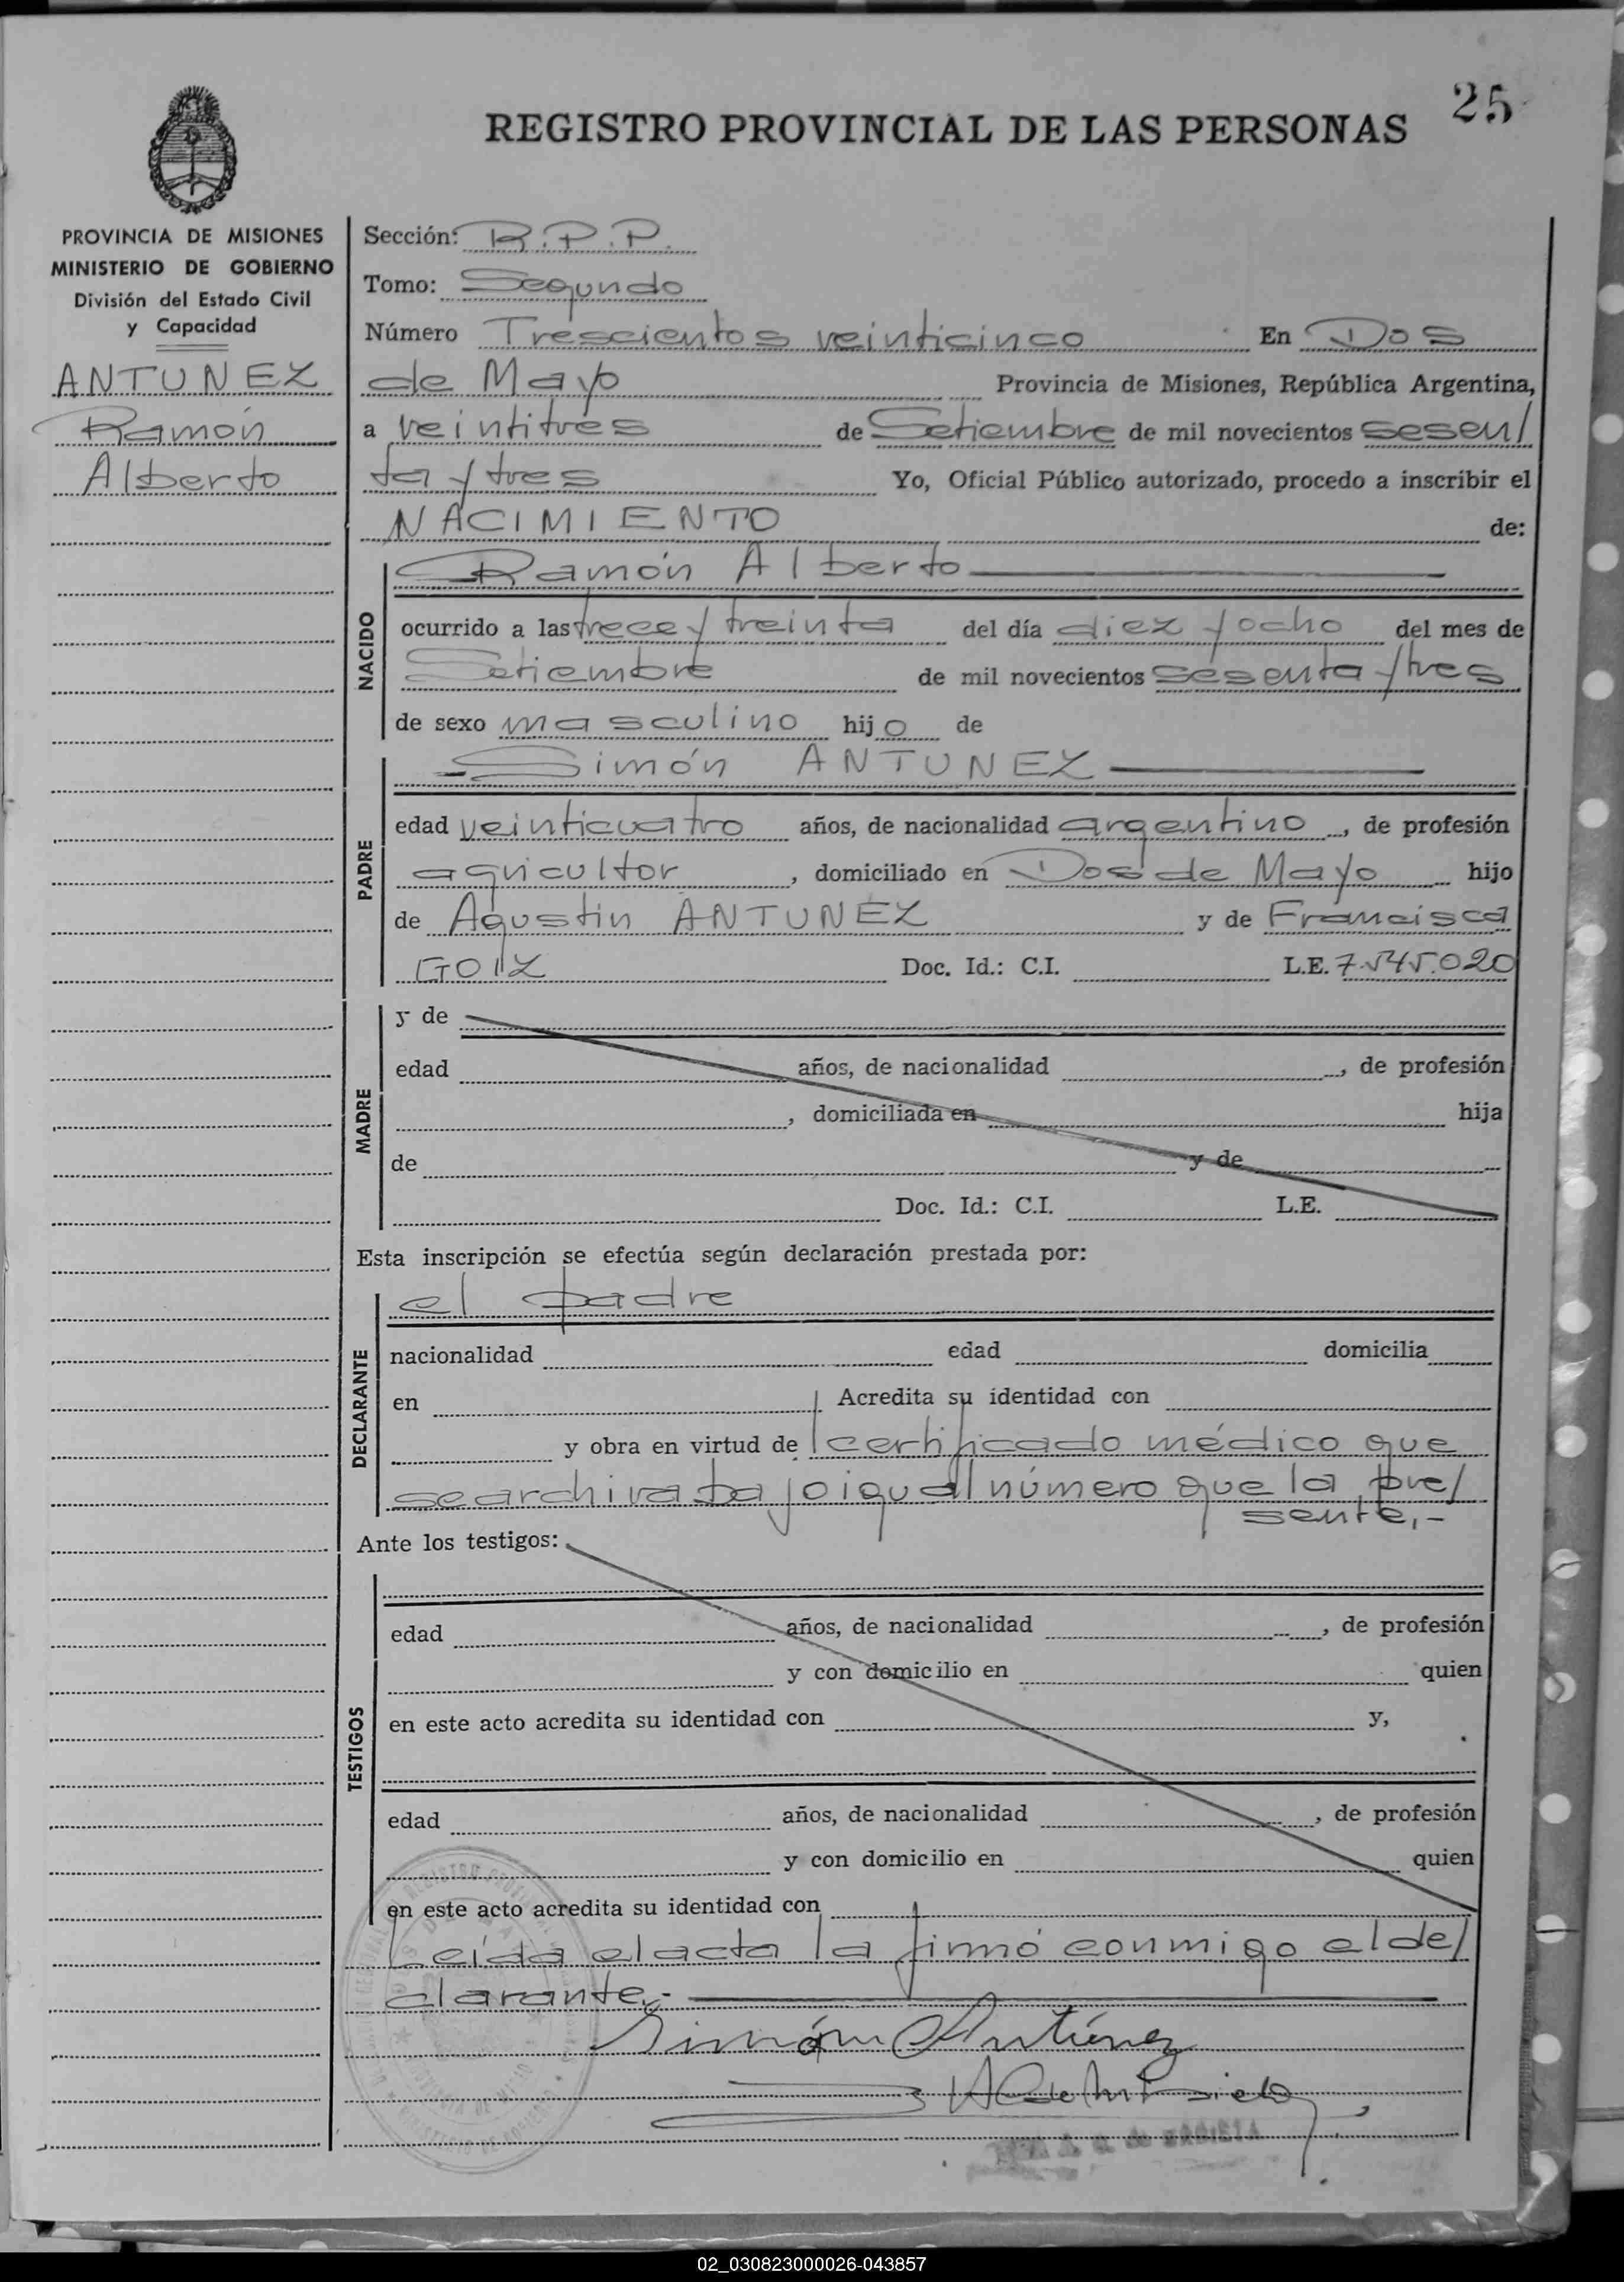 25
REGISTRO PROVINCIAL DE LAS PERSONAS
PROVINCIA DE MISIONES
MINISTERIO DE GOBIERNO
División del Estado Civil
y Capacidad
ANTUNEZ
Ramón
Alberto
Sección: R.P.P.
Tomo: Segundo
Número Trescientos veinticinco En Dos
de Mayo Provincia de Misiones, República Argentina,
a veintitres de Setiembre de mil novecientos sesen/
ta y tres Yo, Oficial Público autorizado, procedo a inscribir el
NACIMIENTO de:
NACIDO
Ramón Alberto
ocurrido a las trece y treinta del día diez y ocho del mes de
Setiembre de mil novecientos sesenta y tres
de sexo masculino hijo de
PADRE
Simón ANTUNEZ
edad veinticuatro años, de nacionalidad argentino, de profesión
agricultor, domiciliado en Dos de Mayo hijo
de Agustin ANTUNEZ y de Francisca
Doc. Id.: C.I. L.E. 7.545.020
MADRE
y de
edad años, de nacionalidad , de profesión
, domiciliada en hija
de y de
Doc. Id.: C.I. L.E.
Esta inscripción se efectúa según declaración prestada por:
DECLARANTE
el padre
nacionalidad edad domicilia
en Acredita su identidad con
y obra en virtud de certificado médico que
se archiva bajo igual número que la pre/
sente,-
Ante los testigos:
TESTIGOS
edad años, de nacionalidad , de profesión
y con domicilio en quien
en este acto acredita su identidad con y,
edad años, de nacionalidad , de profesión
y con domicilio en quien
en este acto acredita su identidad con
Leída el acta la firmó conmigo el de/
clarante,-
Simón Antúnez
02_030823000026-043857